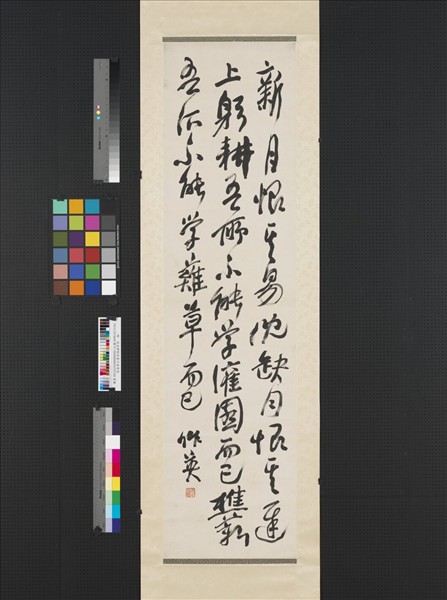 新月恨其易沈缺月恨其遲
上躬耕吾所不能学灌園而已樵薪
吾所不能学薙草而已